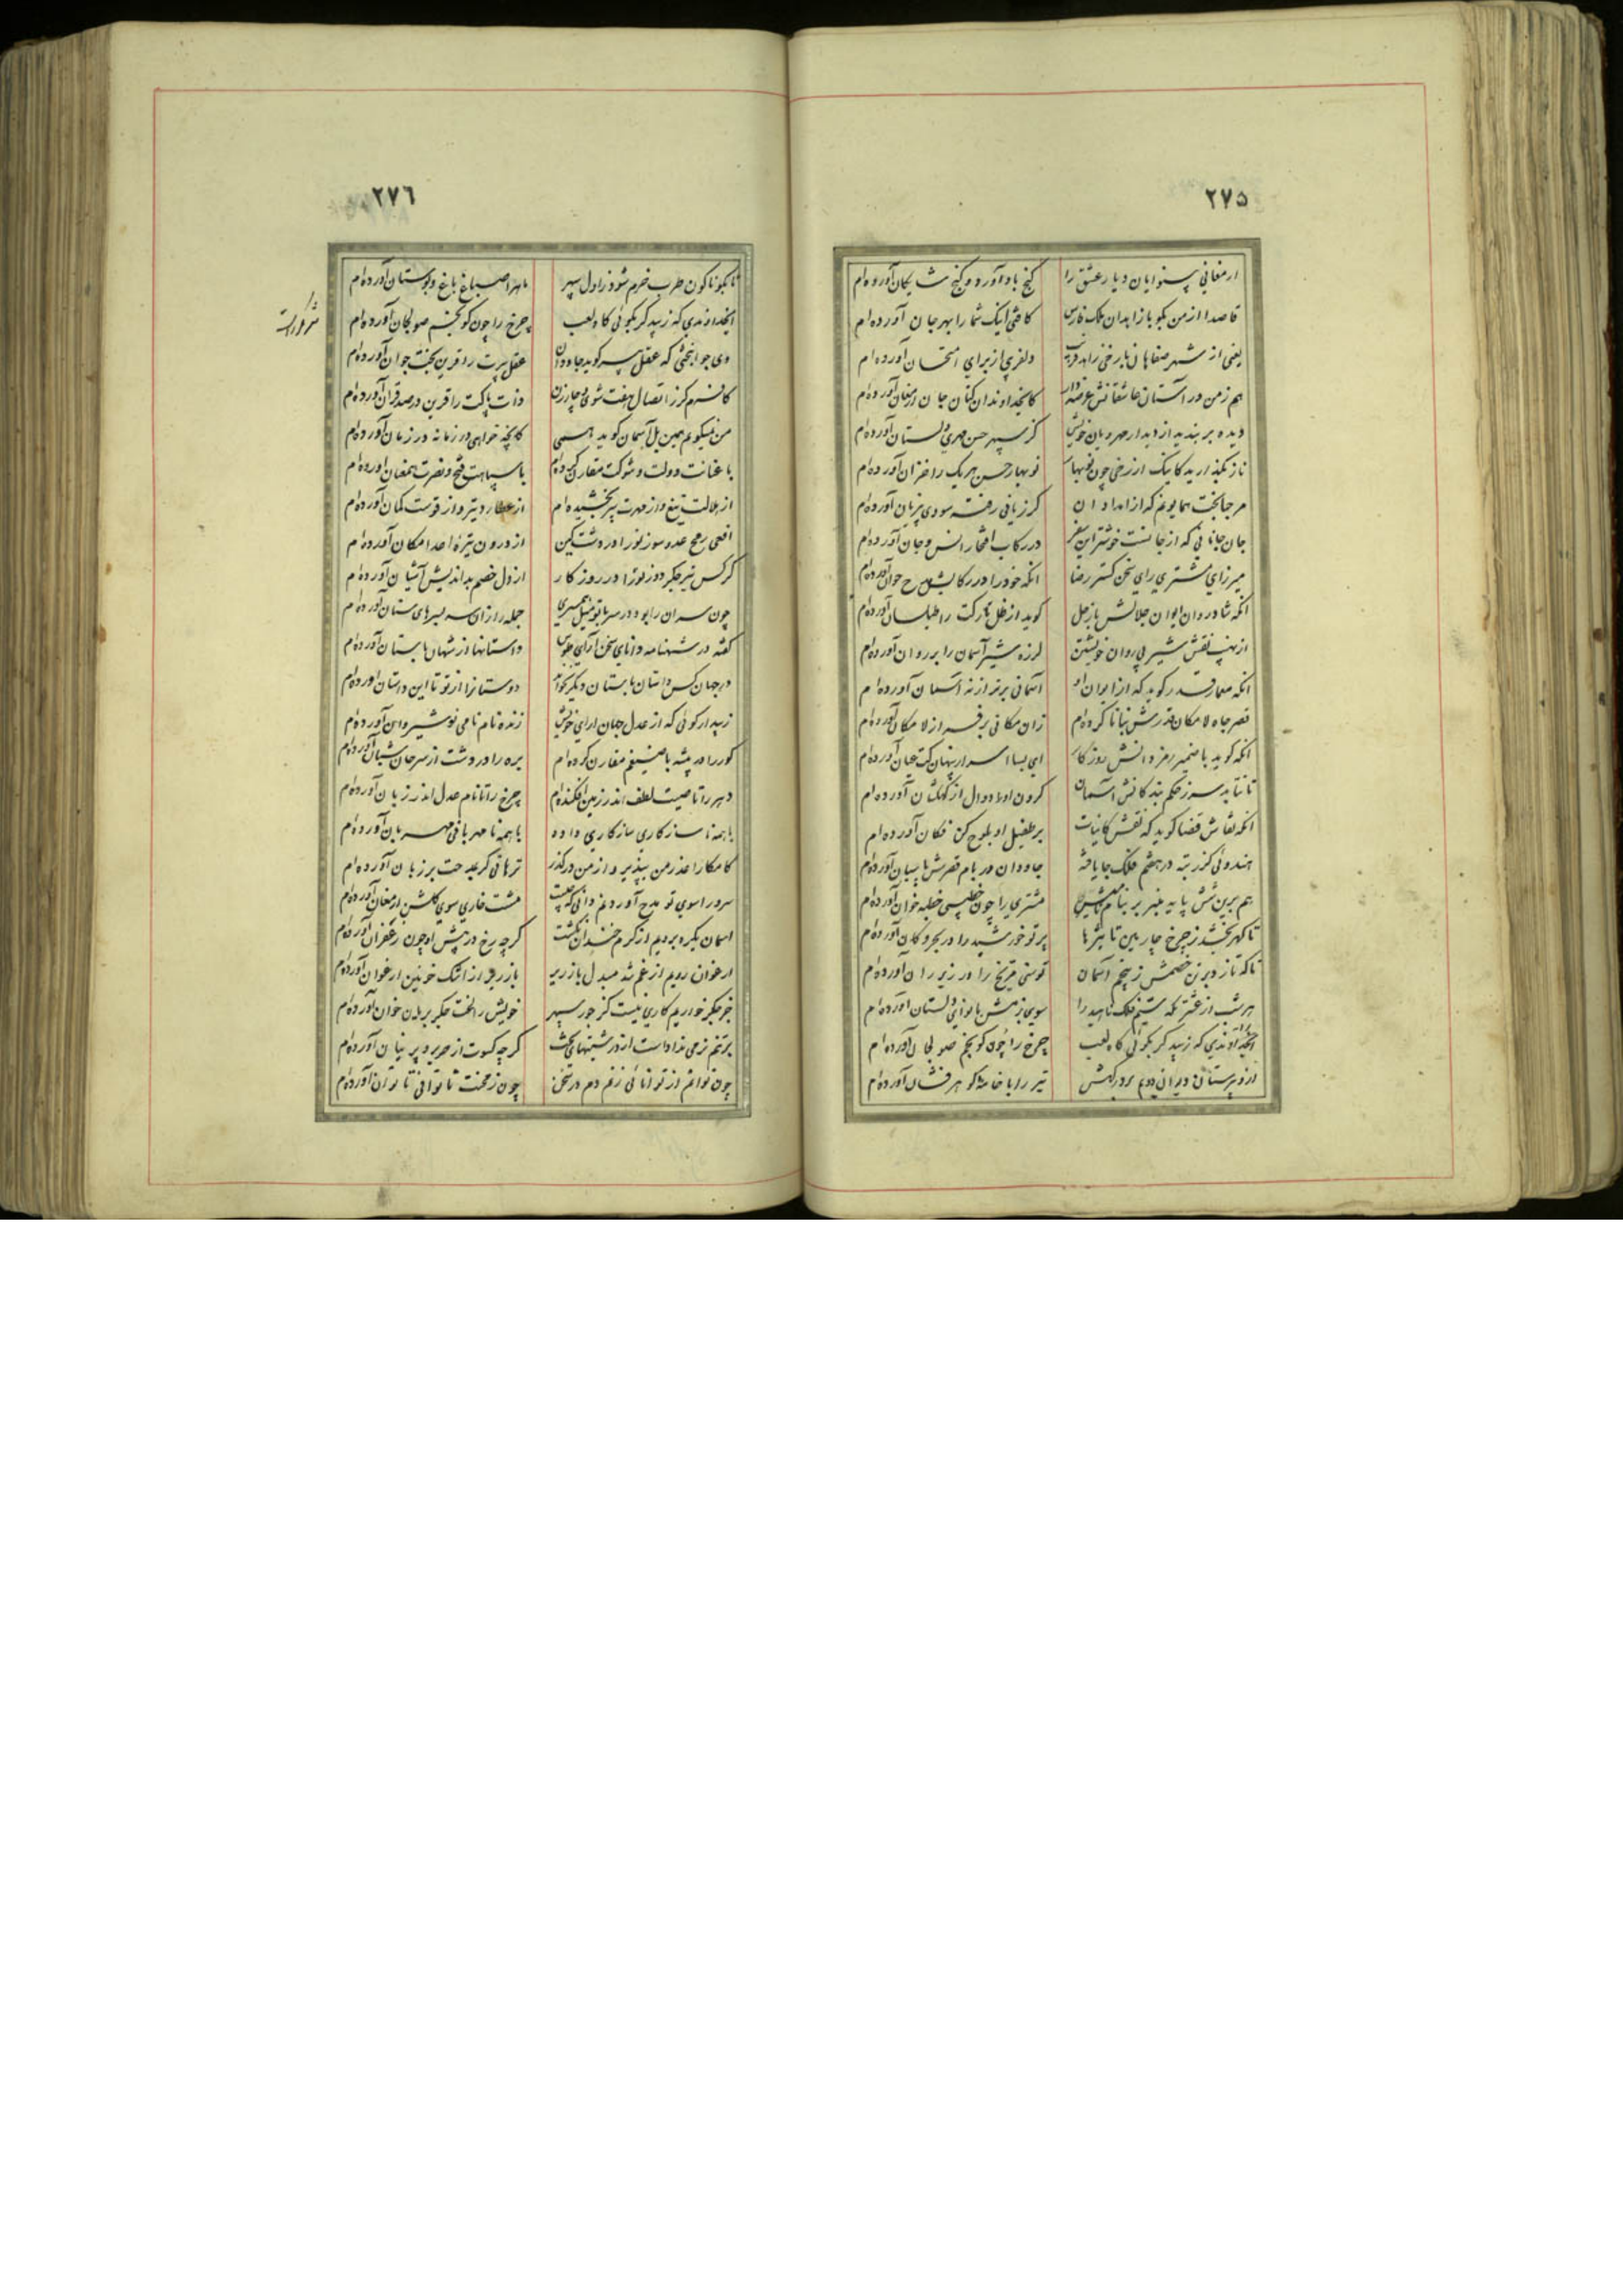 ۲۷۵
ارمغانی بینوایان دیار عشق را گنج باد آورد و گنج شایگان آورده‌ام
قاصدا از من بگو با زاهدان ملک فارس کافتی اینک شما را بهر جان آورده‌ام
یعنی از شهر صفاهان بارخی زاهد فریب دلفریبی از برای امتحان آورده‌ام
هم ز من در آستان عاشقانش عرضه دار کایخداوندان کنان جان ارمغان آورده‌ام
دیده بر بندید از دیدار مهرویان خویش کز سپهر حسن مهری دلستان آورده‌ام
ناز نگذارید کاینک از رخی چون نوبهار نوبهار حسن هر یک را خزان آورده‌ام
مرحبا بخت همایونم که از امداد آن کز زیانی رفته سودی بی زیان آورده‌ام
جان جانانی که از جانست خوشتر این سفر در رکاب افتخار انس و جان آورده‌ام
میرزای مشتری رای سخن گستر رضا آنکه خود را در رکابش مدح خوان آورده‌ام
آنکه شادروان ایوان جلالش بازحل گوید از ظل تارکت را طیلسان آورده‌ام
از نهیب نقش شیر بی روان خویشتن لرزه شیر آسمان را بر روان آورده‌ام
آنکه معمار قدر گوید که از ایوان او آسمانی برتر از نه آسمان آورده‌ام
قصر جاه لامکان قدرش بنا تا کرده‌ام زان مکانی برفراز لامکان آورده‌ام
آنکه گوید با ضمیر رمز دانش روزگار ای بسا اسرار پنهان کت عیان آورده‌ام
تا نتابد سر ز حکم بندگانش آسمان گردن او را دوال از کهکشان آورده‌ام
آنکه نقاش قضا گوید که نقش کاینات بر طفیل او بلوح کن فکان آورده‌ام
هندوئی کز رتبه در هفتم فلک جا یافته جاودان در بام قصرش پاسبان آورده‌ام
هم برین شش پایه منبر بر بنام مشتری را چون خطیبی خطبه خوان آورده‌ام
تا گهر بخشد ز چرخ چارمین تاثیرها پرتو خورشید را در بحر و کان آورده‌ام
تا که تازد بر تن خصمش ز پنجم آسمان توسن مریخ را در زیر ران آورده‌ام
هر شب از عشرتگه سیم فلک ناهید را سوی بزمش با نوای دلستان آورده‌ام
آنخداوندی که زیبد گر بگوئی گاه لعب چرخ را چون گو بخم صولجان آورده‌ام
از دبیرستان دیوان دوم بر درگهش تیر را با خامهٔ گوهر فشان آورده‌ام
۲۷۶
تا بگوناگون طرب خرم شود ز اول سپهر ماه را صد باغ باغ و بوستان آورده‌ام
آنخداوندی که زیبد گر بگوئی گاه لعب چرخ را چون گو بخم صولجان آورده‌ام
وی جوانبختی که عقل پیر گوید جاودان عقل پیرت را قرین بخت جوان آورده‌ام
کافرم گر ز اتصال هفت شوی و چار زن ذات پاکت را قرین در صد قران آورده‌ام
من نمیگویم همین بل آسمان گوید همی کانچه خواهی در زمانه در زمان آورده‌ام
با عنانت دولت و شوکت مقارن کرده‌ام با سپاهت فتح و نصرت همعنان آورده‌ام
از هلالت تیغ و از مهرت سپر بخشیده‌ام از عطارد تیر و از قوست کمان آورده‌ام
افعی رمح عدو سوز تو را در دشت کین از درون تیرهٔ اعدا مکان آورده‌ام
کرکس تیر جگر دوز تو را در روزگار از دل خصم بداندیش آشیان آورده‌ام
چون سران را بود در سر با تو میل همسری جمله را ز آن سر بسرهای سنان آورده‌ام
گفته در شهنامه دانای سخن آرای طوس داستانها از شهان باستان آورده‌ام
در جهان کس داستان باستان دیگر نخواند دوستان را از تو تا این داستان آورده‌ام
زیبد ار گوئی که از عدل جهان آرای خویش زنده نام نامی نوشیروان آورده‌ام
گور را در بیشه با ضیغم مقارن کرده‌ام بره را در دشت از سرحان شبان آورده‌ام
دهر را تا صیت لطف اندر زمین افکنده‌ام چرخ را تا نام عدل اندر زبان آورده‌ام
با همه ناسازگاری سازگاری داده با همه نامهربانی مهربان آورده‌ام
کامکارا عذر من بپذیر و از من درگذر ترهاتی گر بمدحت بر زبان آورده‌ام
سرورا سوی تو مدح آوردنم دانی که چیست مشت خاری سوی گلشن ارمغان آورده‌ام
آسمان یکره برویم از کرم خندان نگشت گرچه رخ در پیش او چون زعفران آورده‌ام
ارغوان رویم از غم شد مبدل بازریر باز رخ از اشک خونین ارغوان آورده‌ام
جز جگر خوردیم کاری نیست کز جور سپهر خویش را لخت جگر بر خوان آورده‌ام
بر تنم نرمی نداداست از درشتیهای بخت گرچه کسوت از حریر و پرنیان آورده‌ام
چون توانم از توانائی زنم دم در سخن چون ز محنت ناتوانی ناتوان آورده‌ام